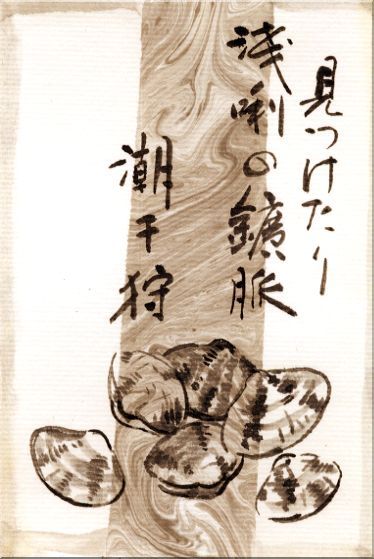 見つけたり
浅蜊の鑛脈
潮干狩